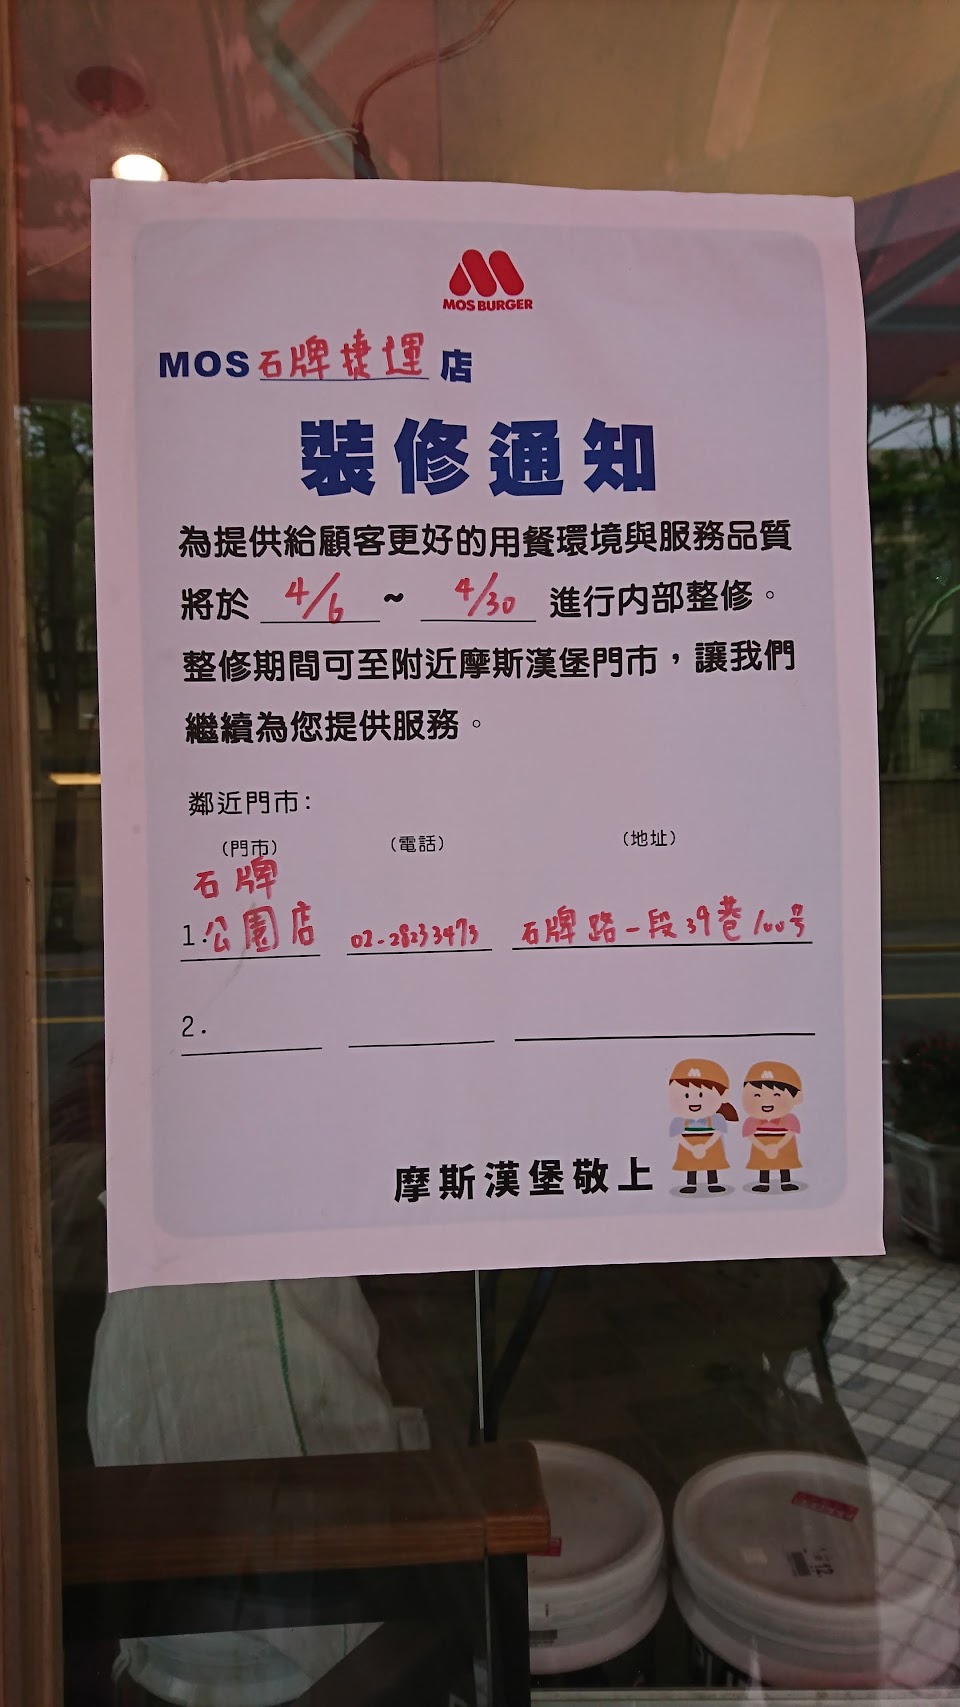 MOS BURGER
MOS 石牌捷運 店
裝修通知
為提供給顧客更好的用餐環境與服務品質
將於 4/6 ~ 4/30 進行內部整修。
整修期間可至附近摩斯漢堡門市，讓我們
繼續為您提供服務。
鄰近門市:
(門市) (電話) (地址)
石牌
1.公園店 02-28233473 石牌路一段39巷100号
2.
摩斯漢堡敬上